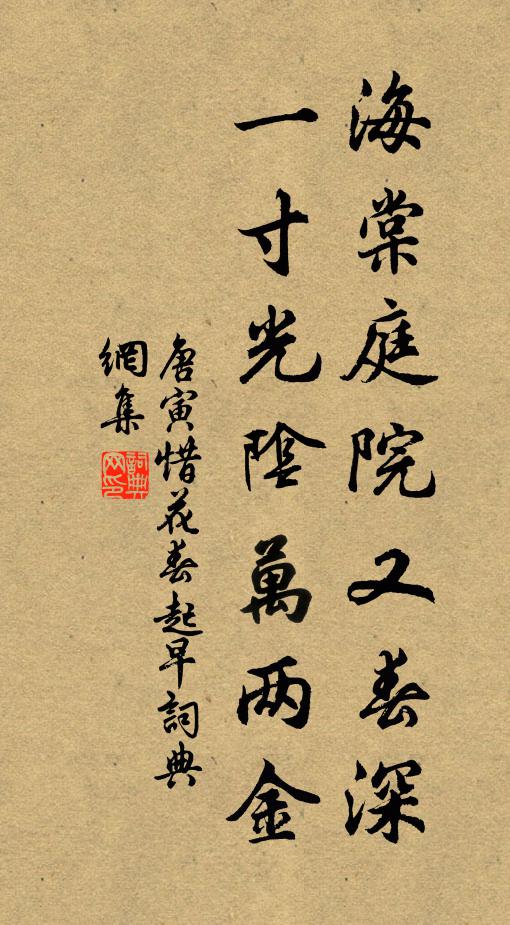 海棠庭院又春深
一寸光陰萬两金
唐寅惜花春起早詞典
網集
詞典
网印